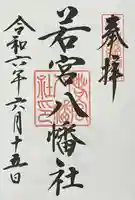 奉拝
若宮八幡社
令和六年六月十五日